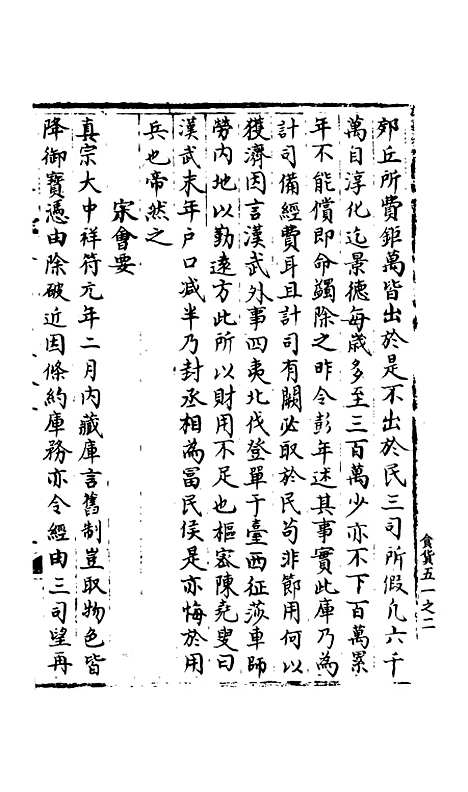 郊丘所費鉅萬皆出於是不出於民三司所假凡六千
萬自淳化迄景德每歲多至三百萬少亦不下百萬累
年不能償即命蠲除之昨令彭年述其事實此庫乃為
計司備經費耳且計司有闕必取於民苟非節用何以
獲濟因言漢武外事四夷北伐登單于臺西征莎車師
勞內地以勤遠方此所以財用不足也樞宻陳堯叟曰
漢武末年户口减半乃封丞相為冨民侯是亦悔於用
兵也帝然之
宋會要
真宗大中祥符元年二月內藏庫言舊制豈取物色皆
降御寶憑由除破近因條約庫務亦令經由三司望再
食貨五一之二